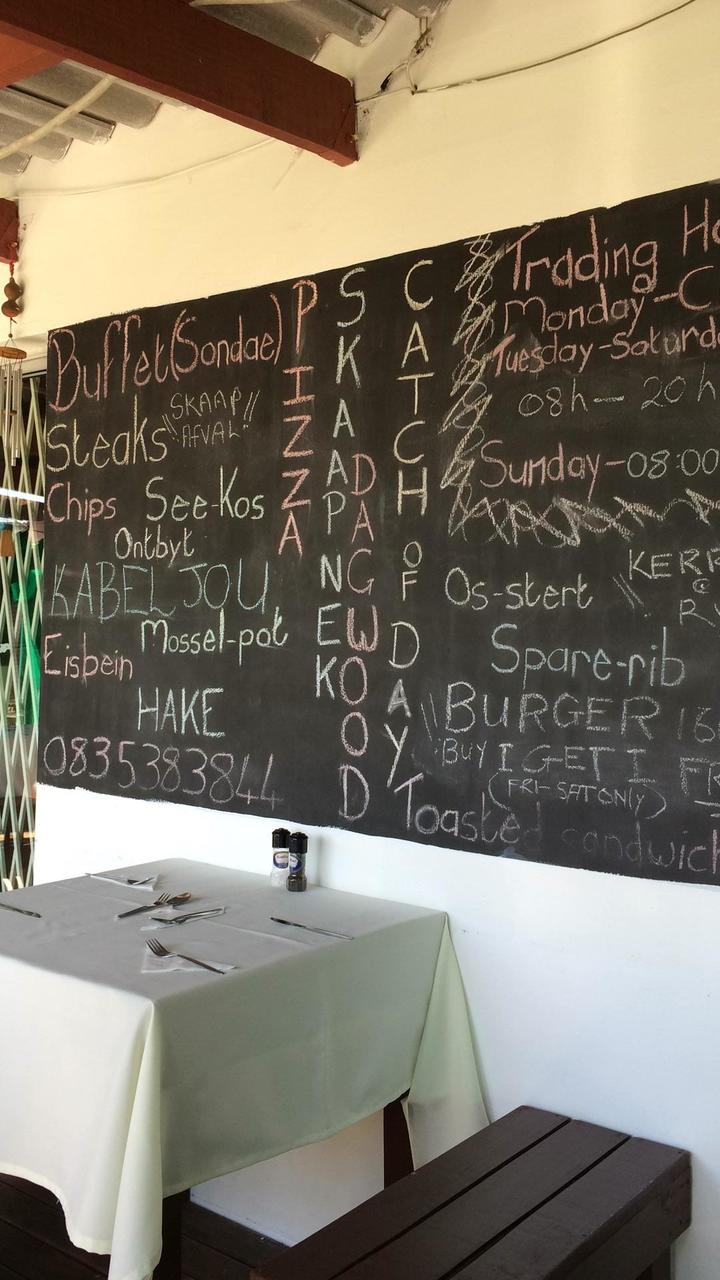 Buffet (Sondae)
Steaks "SKAAP AFVAL"
Chips See-Kos
Ontbyt
KABELJOU
Mossel-pot
Eisbein
HAKE
0835383844
PIZZA
SKAAPNEK
DAGWOOD
CATCH OF DAY
Trading Ho
Monday-C
Tuesday-Saturda
08h-20h
Sunday-08:00
Os-stert "KERR
@
R
Spare-rib
"BURGER
"BUY 1 GET 1 FR
(FRI-SAT ONLY)
Toasted sandwich